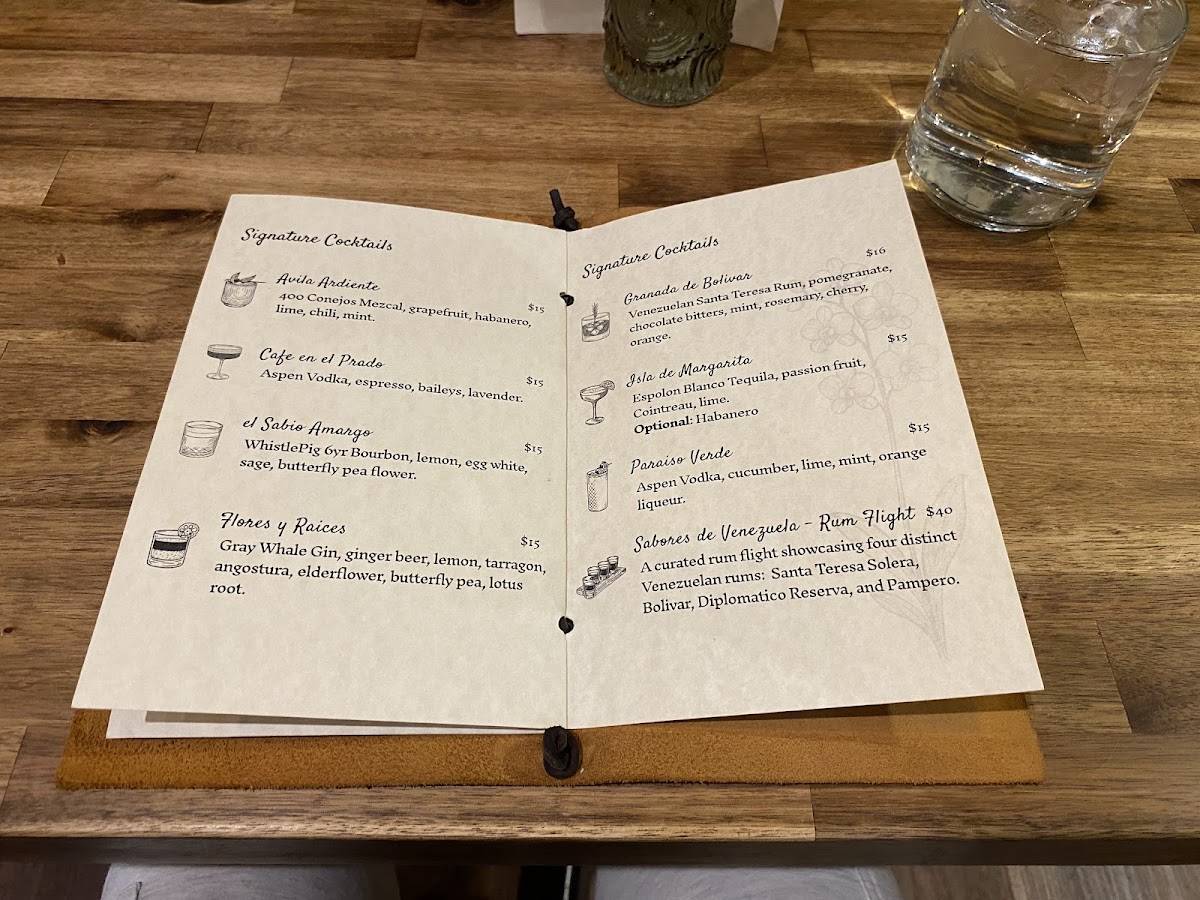 Signature Cocktails
Avila Ardiente
$15
400 Conejos Mezcal, grapefruit, habanero,
lime, chili, mint.
Cafe en el Prado
$15
Aspen Vodka, espresso, baileys, lavender.
el Sabio Amargo
$15
WhistlePig 6yr Bourbon, lemon, egg white,
sage, butterfly pea flower.
Flores y Raices
$15
Gray Whale Gin, ginger beer, lemon, tarragon,
angostura, elderflower, butterfly pea, lotus
root.
Signature Cocktails
$16
Granada de Bolivar
Venezuelan Santa Teresa Rum, pomegranate,
chocolate bitters, mint, rosemary, cherry,
orange.
$15
Isla de Margarita
Espolon Blanco Tequila, passion fruit,
Cointreau, lime.
Optional: Habanero
$15
Paraiso Verde
Aspen Vodka, cucumber, lime, mint, orange
liqueur.
Sabores de Venezuela - Rum Flight $40
A curated rum flight showcasing four distinct
Venezuelan rums: Santa Teresa Solera,
Bolivar, Diplomatico Reserva, and Pampero.